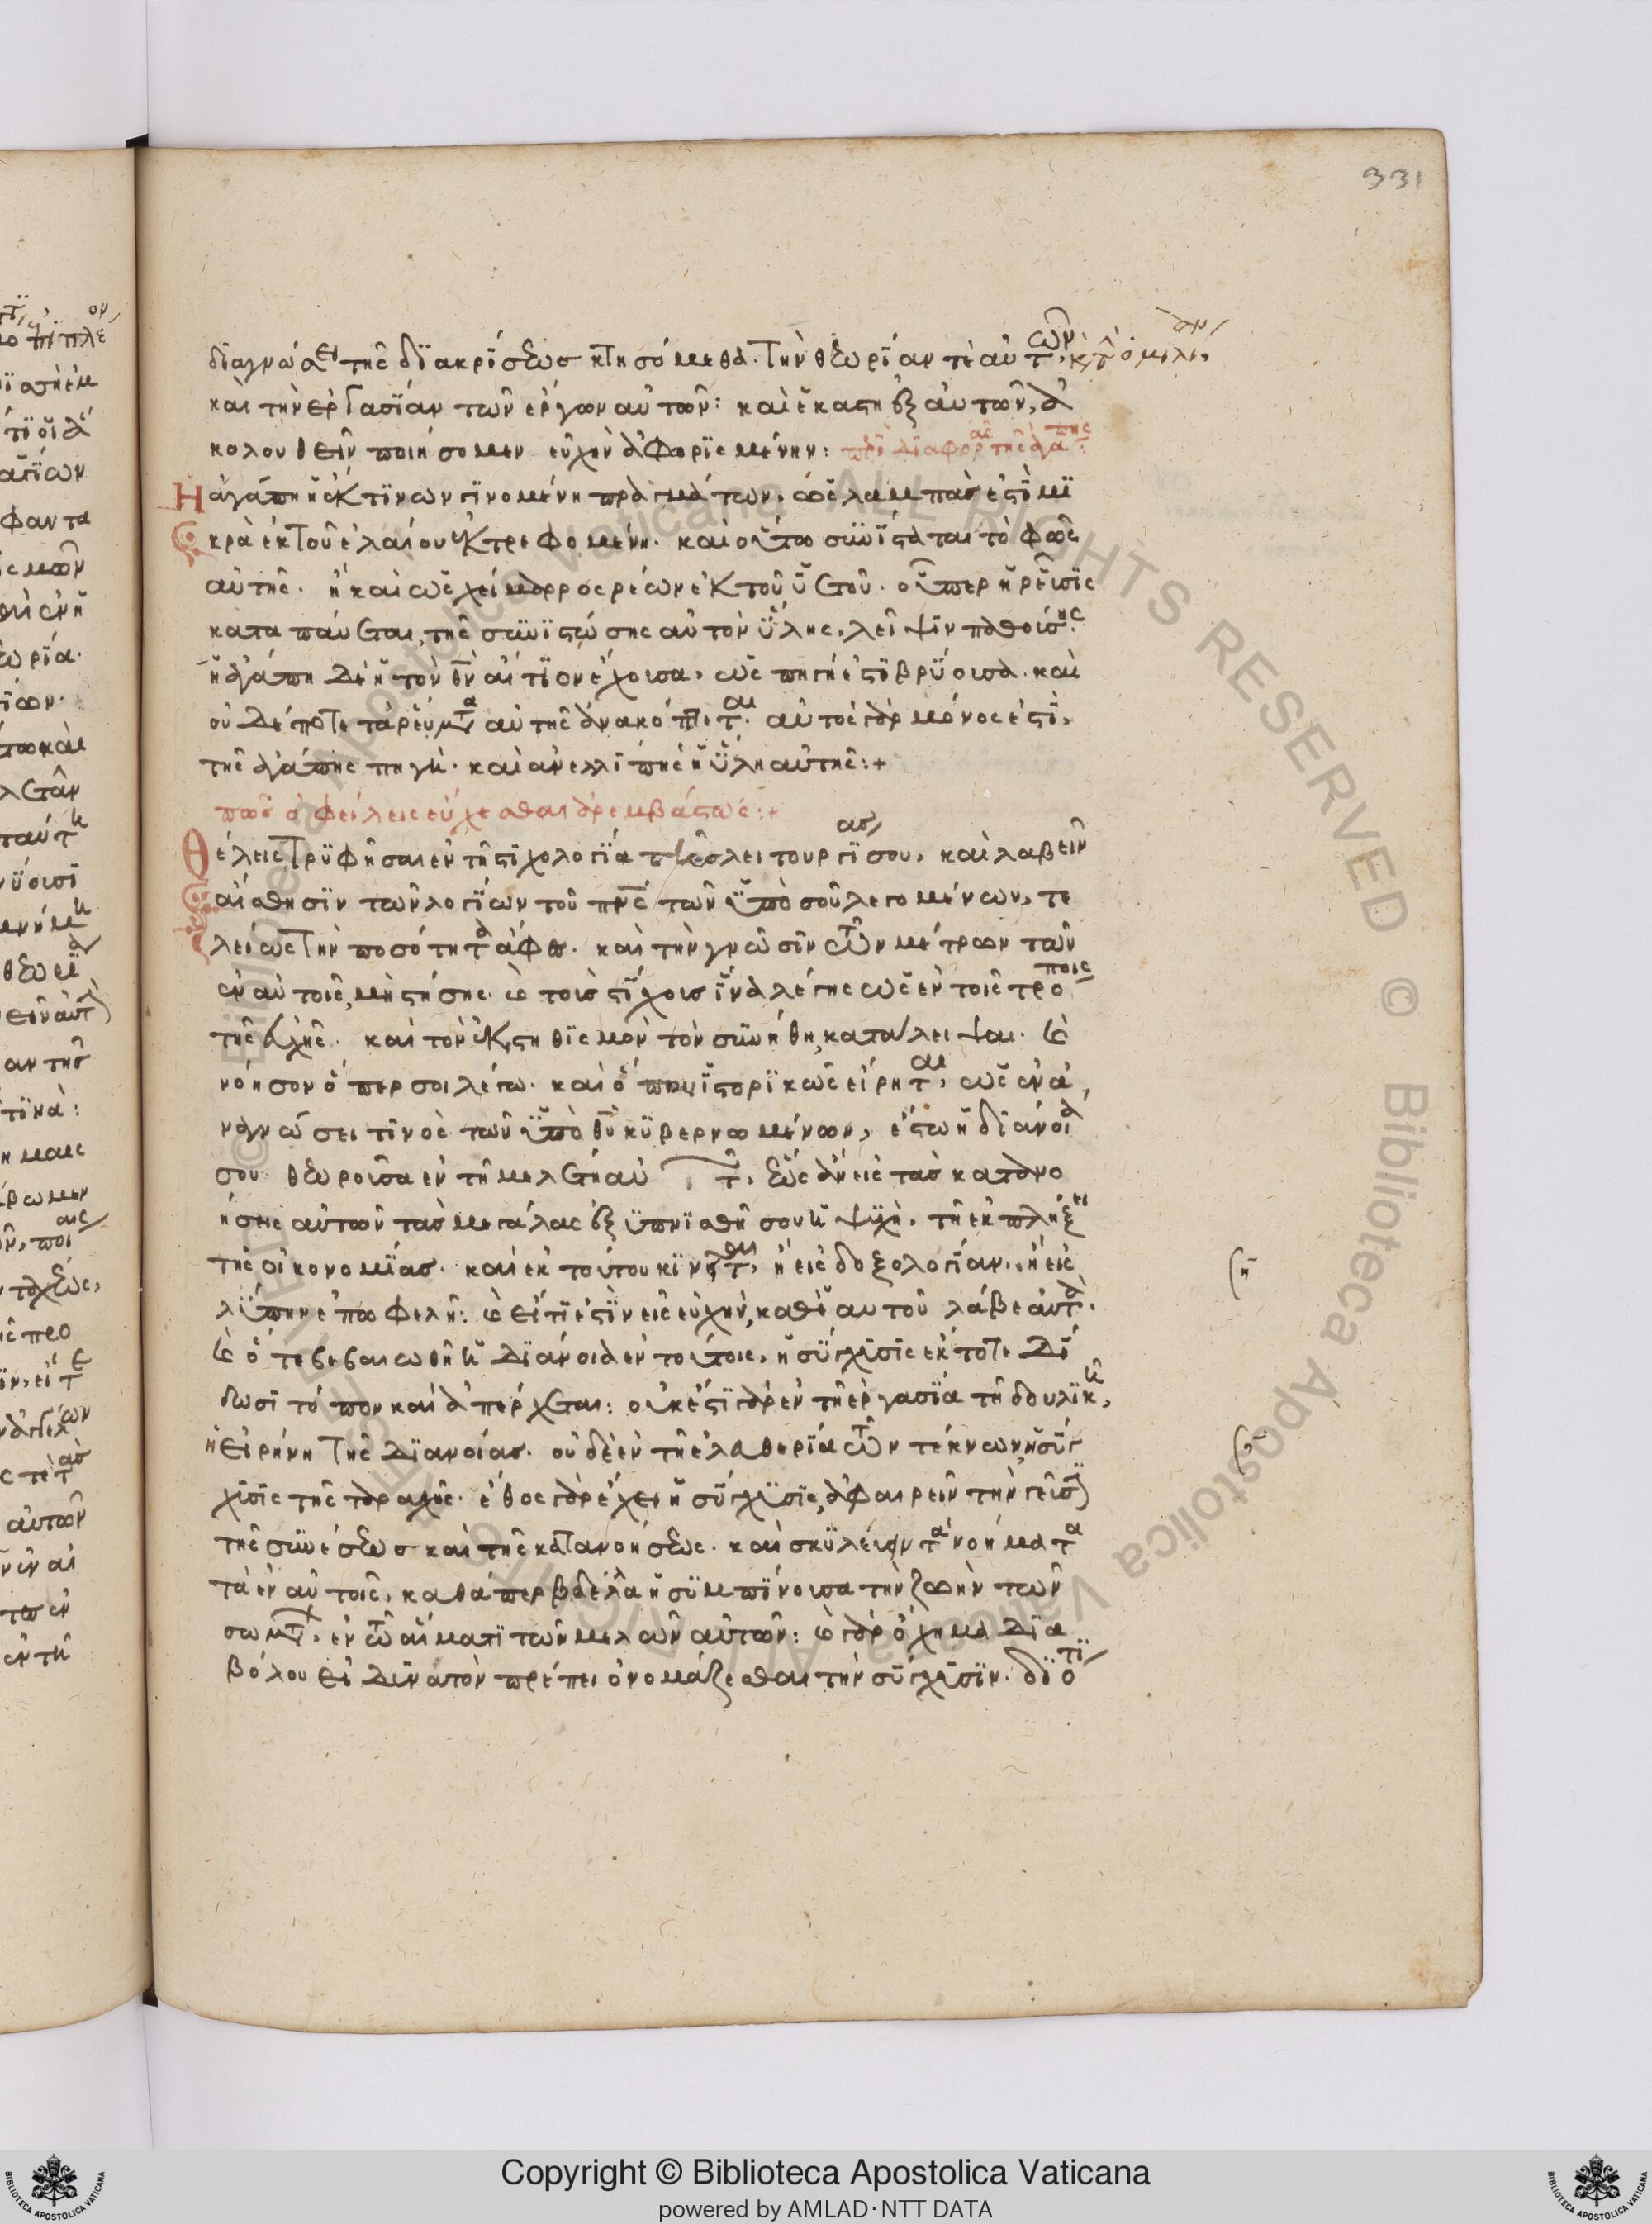 331
διαγνώσει τῆς διακρίσεως κτησόμεθα. τὴν θεωρίαν τὲ αὐτῶν,
καὶ τὴν ἐργασίαν τῶν ἔργων αὐτῶν: καὶ ἑκάστη ἐξ αὐτῶν, ἀ
κολουθεῖν ποιήσομεν εὐχὴν ἀφωρισμένην: περὶ διαφορᾶς τῆς ἀγάπης:
Η ἀγάπη ἡ ἔκ τινων γινομένη πραγμάτων, ὡς λαμπάς ἐστι μι
κρὰ ἐκ τοῦ ἐλαίου ἐκτρεφομένη. καὶ οὕτω συνίσταται τὸ φῶς
αὐτῆς. ἢ καὶ ὡς χείμαρρος ρέων ἐκ τοῦ ὑετοῦ. οὗπερ ἡ ρεῦσις
καταπαύεται, τῆς συνιστώσης αὐτὸν ὕλης, λεῖψιν παθούσης.
ἡ ἀγάπη δὲ ἡ τὸν θν αἴτιον ἔχουσα, ὡς πηγή ἐστι βρύουσα. καὶ
οὐδέποτε τὰ ρεύματα αὐτῆς ἀνακόπτεται. αὐτὸς γὰρ μόνος ἐστὶ,
τῆς ἀγάπης πηγή. καὶ ἀνελλιπὴς ἡ ὕλη αὐτῆς:+
πῶς ὀφείλεις εὔχεσθαι ἀρεμβάστως:+
Θέλεις τρυφῆσαι ἐν τῇ στιχολογία τῆς λειτουργίας σου, καὶ λαβεῖν
αἴσθησιν τῶν λογίων τοῦ πνς τῶν ὑπὸ σοῦ λεγομένων, τε
λείως τὴν ποσότητα ἄφες. καὶ τὴν γνῶσιν τῶν μέτρων τῶν
ἐν αὐτοῖς, μὴ στήσης. ἐν τοῖς στίχοις ἵνα λέγης ὡς ἐν τοῖς τρόποις
τῆς εὐχῆς. καὶ τὸν ἐκστηθισμὸν τὸν συνήθη, κατάλειψαι. καὶ
νόησον ὅπερ σοι λέγω. καὶ ὅπου ἱστορικῶς εἴρηται, ὡς ἐν ἀ
ναγνώσει τινὸς τῶν ὑπὸ θυ κυβερνωμένων, ἔστω ἡ διάνοια
σου θεωροῦσα ἐν τῇ μελέτη αὐτῶν, ἕως ἂν εἰς τὰς κατανο
ήσεις αὐτῶν τὰς μεγάλας ἐξυπνισθῇ σου ἡ ψυχὴ, τῇ ἐκπλήξει
τῆς οἰκονομίας. καὶ ἐκ τούτου κινῆται, ἢ εἰς δοξολογίαν, ἢ εἰς
λύπην ἐπωφελῆ: καὶ εἴ τι ἐστὶν εἰς εὐχὴν, καθ' ἑαυτοῦ λάβε αὐτά.
καὶ ὅτε βεβαιωθῇ ἡ διάνοια ἐν τούτοις, ἡ σύγχυσις ἐκ τότε δί
δωσι τόπον καὶ ἀπέρχεται: οὐκ ἔστι γὰρ ἐν τῇ ἐργασία τῇ δουλικῇ,
ἡ εἰρήνη τῆς διανοίας. οὐδὲ ἐν τῇ ἐλευθερία τῶν τέκνων, ἡ σύγ
χυσις τῆς ταραχῆς. ἔθος γὰρ ἔχει ἡ σύγχυσις, ἀφαιρεῖν τὴν γεῦσιν
τῆς συνέσεως καὶ τῆς κατανοήσεως. καὶ σκυλεύειν τὰ νοήματα
τὰ ἐν αὐτοῖς, καθάπερ βδέλλα ἡ συμπίνουσα τὴν ζωὴν τῶν
σωμάτων, ἐν τῷ αἵματι τῶν μελῶν αὐτῶν: καὶ γὰρ ὄχημα δια
βόλου εἰ δυνατὸν πρέπει ὀνομάζεσθαι τὴν σύγχυσιν. διότι
Copyright © Biblioteca Apostolica Vaticana
powered by AMLAD·NTT DATA